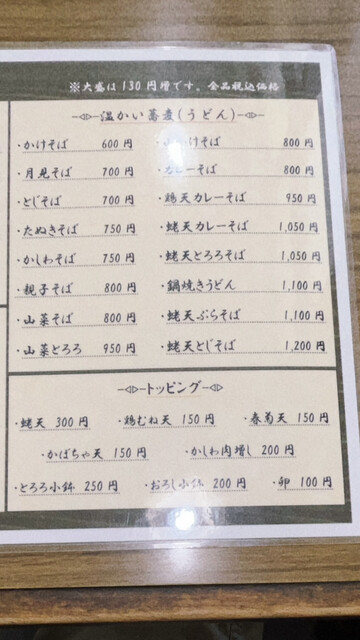 ※大盛は130円増です。全品税込価格
温かい蕎麦(うどん)
・かけそば 600円
・月見そば 700円
・とじそば 700円
・たぬきそば 750円
・かしわそば 750円
・親子そば 800円
・山菜そば 800円
・山菜とろろ 950円
けそば 800円
ーそば 800円
・鶏天カレーそば 950円
・蛯天カレーそば 1,050円
・蛯天とろろそば 1,050円
・鍋焼きうどん 1,100円
・蛯天ぷらそば 1,100円
・蛯天とじそば 1,200円
トッピング
・蛯天 300円 ・鶏むね天 150円 ・春菊天 150円
・かぼちゃ天 150円 ・かしわ肉増し 200円
・とろろ小鉢 250円 ・おろし小鉢 200円 ・卵 100円